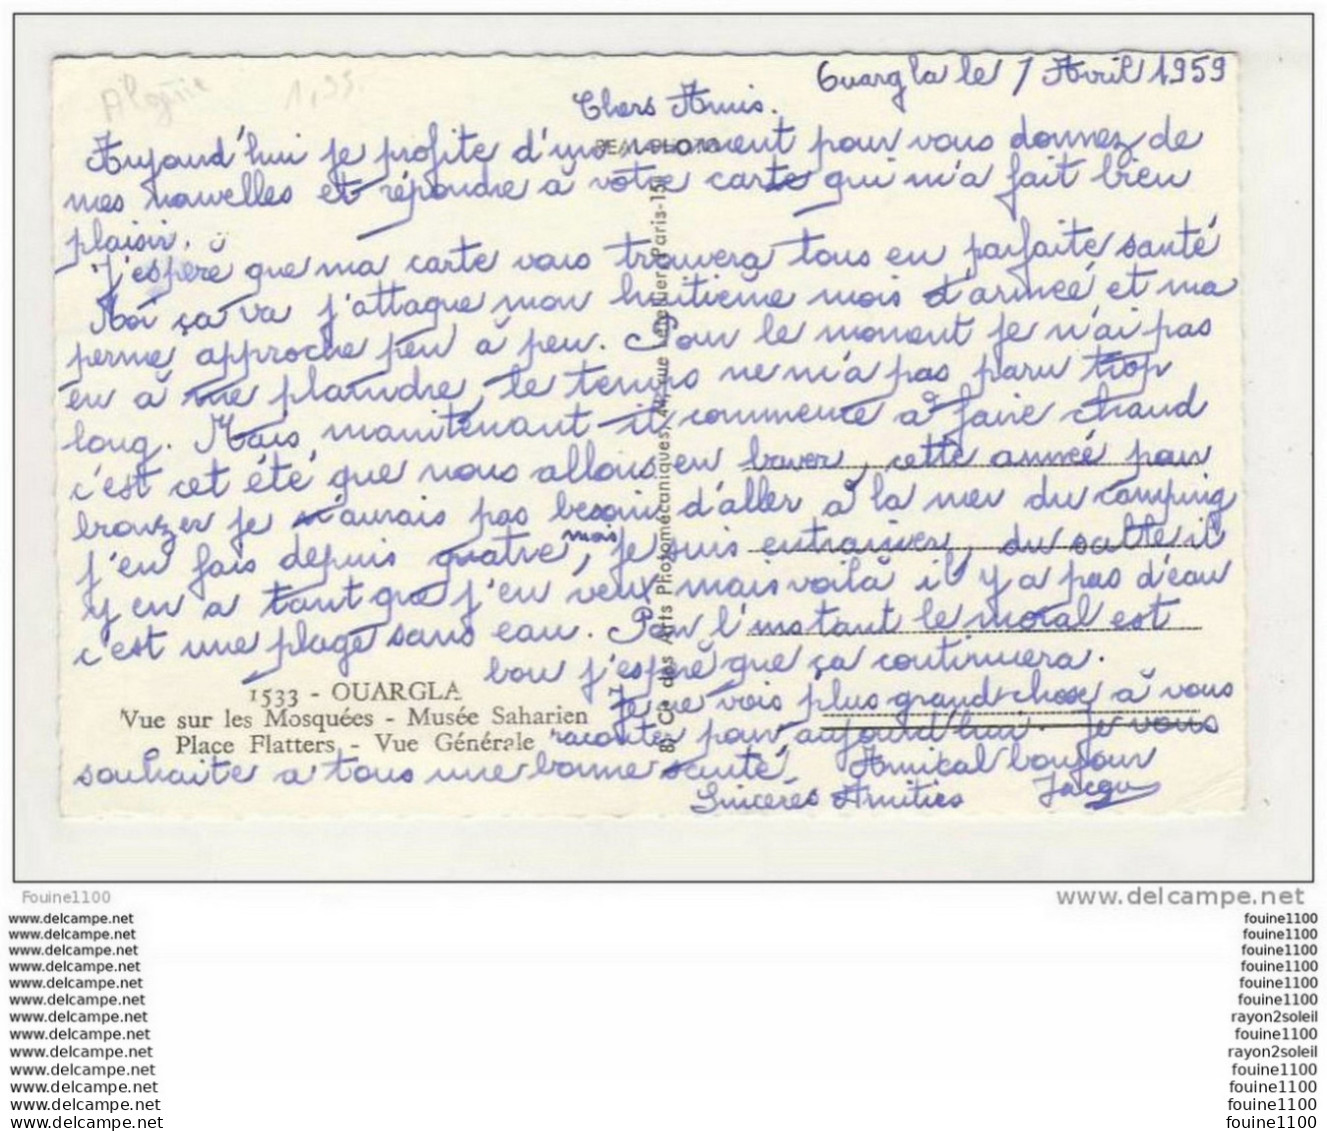 Algérie 1,95.
Ouargla le 7 Avril 1959
Chers Amis.
REAL-PHOTO
Aujourd'hui je profite d'un moment pour vous donnez de
mes nouvelles et répondre à votre carte qui m'a fait bien
plaisir.
J'espère que ma carte vous trouvera tous en parfaite santé
Moi ça va j'attaque mon huitième mois d'armée et ma
perme approche peu à peu. Pour le moment je n'ai pas
eu à me plaindre, le temps ne m'a pas paru trop
long. Mais maintenant il commence à faire chaud
c'est cet été que nous allons en baver, cette année pour
bronzer je n'aurais pas besoin d'aller à la mer du camping
j'en fais depuis quatre mois, je suis entrainer, du sable il
y en a tant que j'en veux mais voilà il y a pas d'eau
c'est une plage sans eau. Pour l'instant le moral est
bon j'espère que ça continuera.
Je ne vois plus grand chose à vous
raconter pour aujourd'hui. Je vous
souhaite a tous une bonne santé. Amical bonjour
Sincères Amitiés Jacques
1533 - OUARGLA
Vue sur les Mosquées - Musée Saharien
Place Flatters - Vue Générale
des Arts Photomécaniques, 44, rue Letellier, Paris-15
Fouine1100
www.delcampe.net
www.delcampe.net
www.delcampe.net
www.delcampe.net
www.delcampe.net
www.delcampe.net
www.delcampe.net
www.delcampe.net
www.delcampe.net
www.delcampe.net
www.delcampe.net
www.delcampe.net
www.delcampe.net
www.delcampe.net
fouine1100
fouine1100
fouine1100
fouine1100
fouine1100
fouine1100
rayon2soleil
fouine1100
rayon2soleil
fouine1100
fouine1100
fouine1100
fouine1100